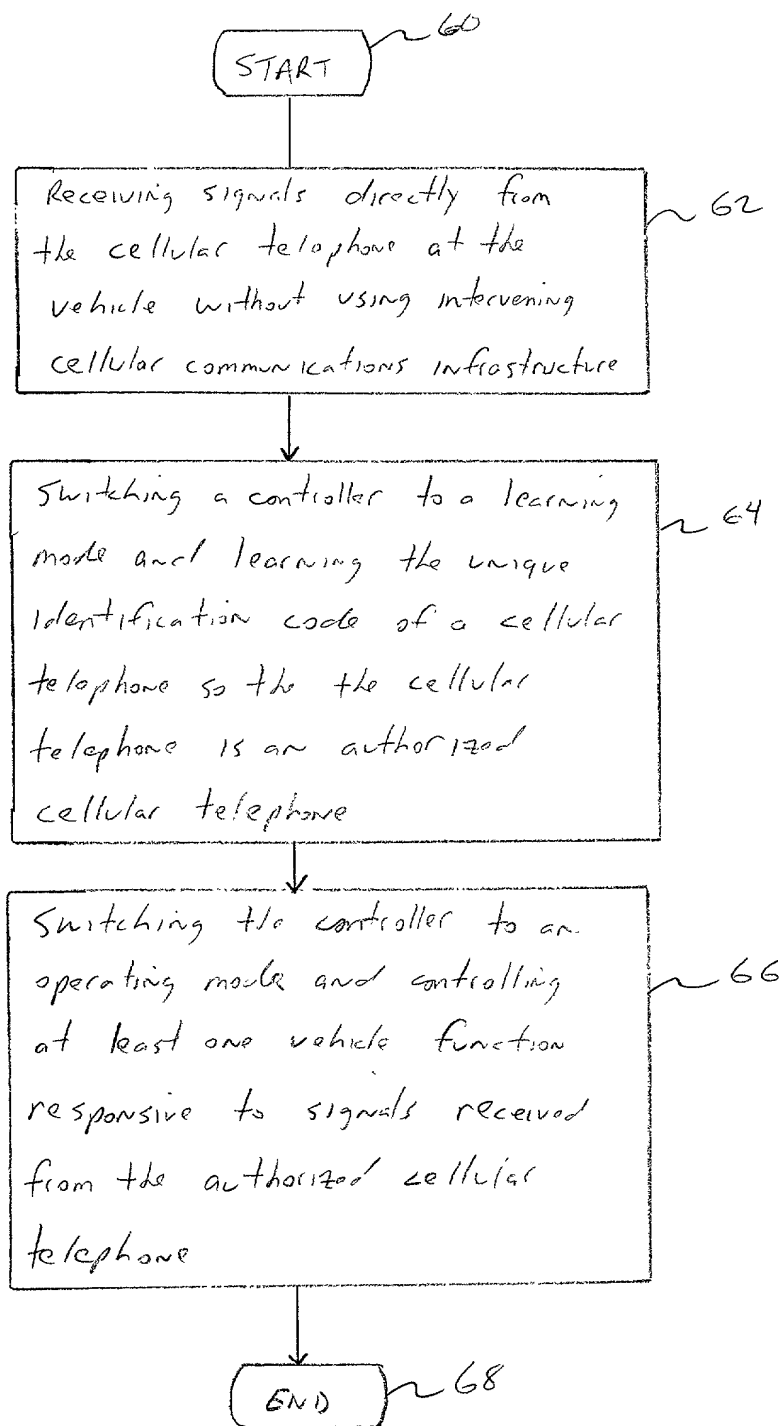 60
START
Receiving signals directly from
the cellular telephone at the
vehicle without using intervening
cellular communications infrastructure
62
Switching a controller to a learning
mode and learning the unique
identification code of a cellular
telephone so the the cellular
telephone is an authorized
cellular telephone
64
Switching the controller to an
operating mode and controlling
at least one vehicle function
responsive to signals received
from the authorized cellular
telephone
66
END
68